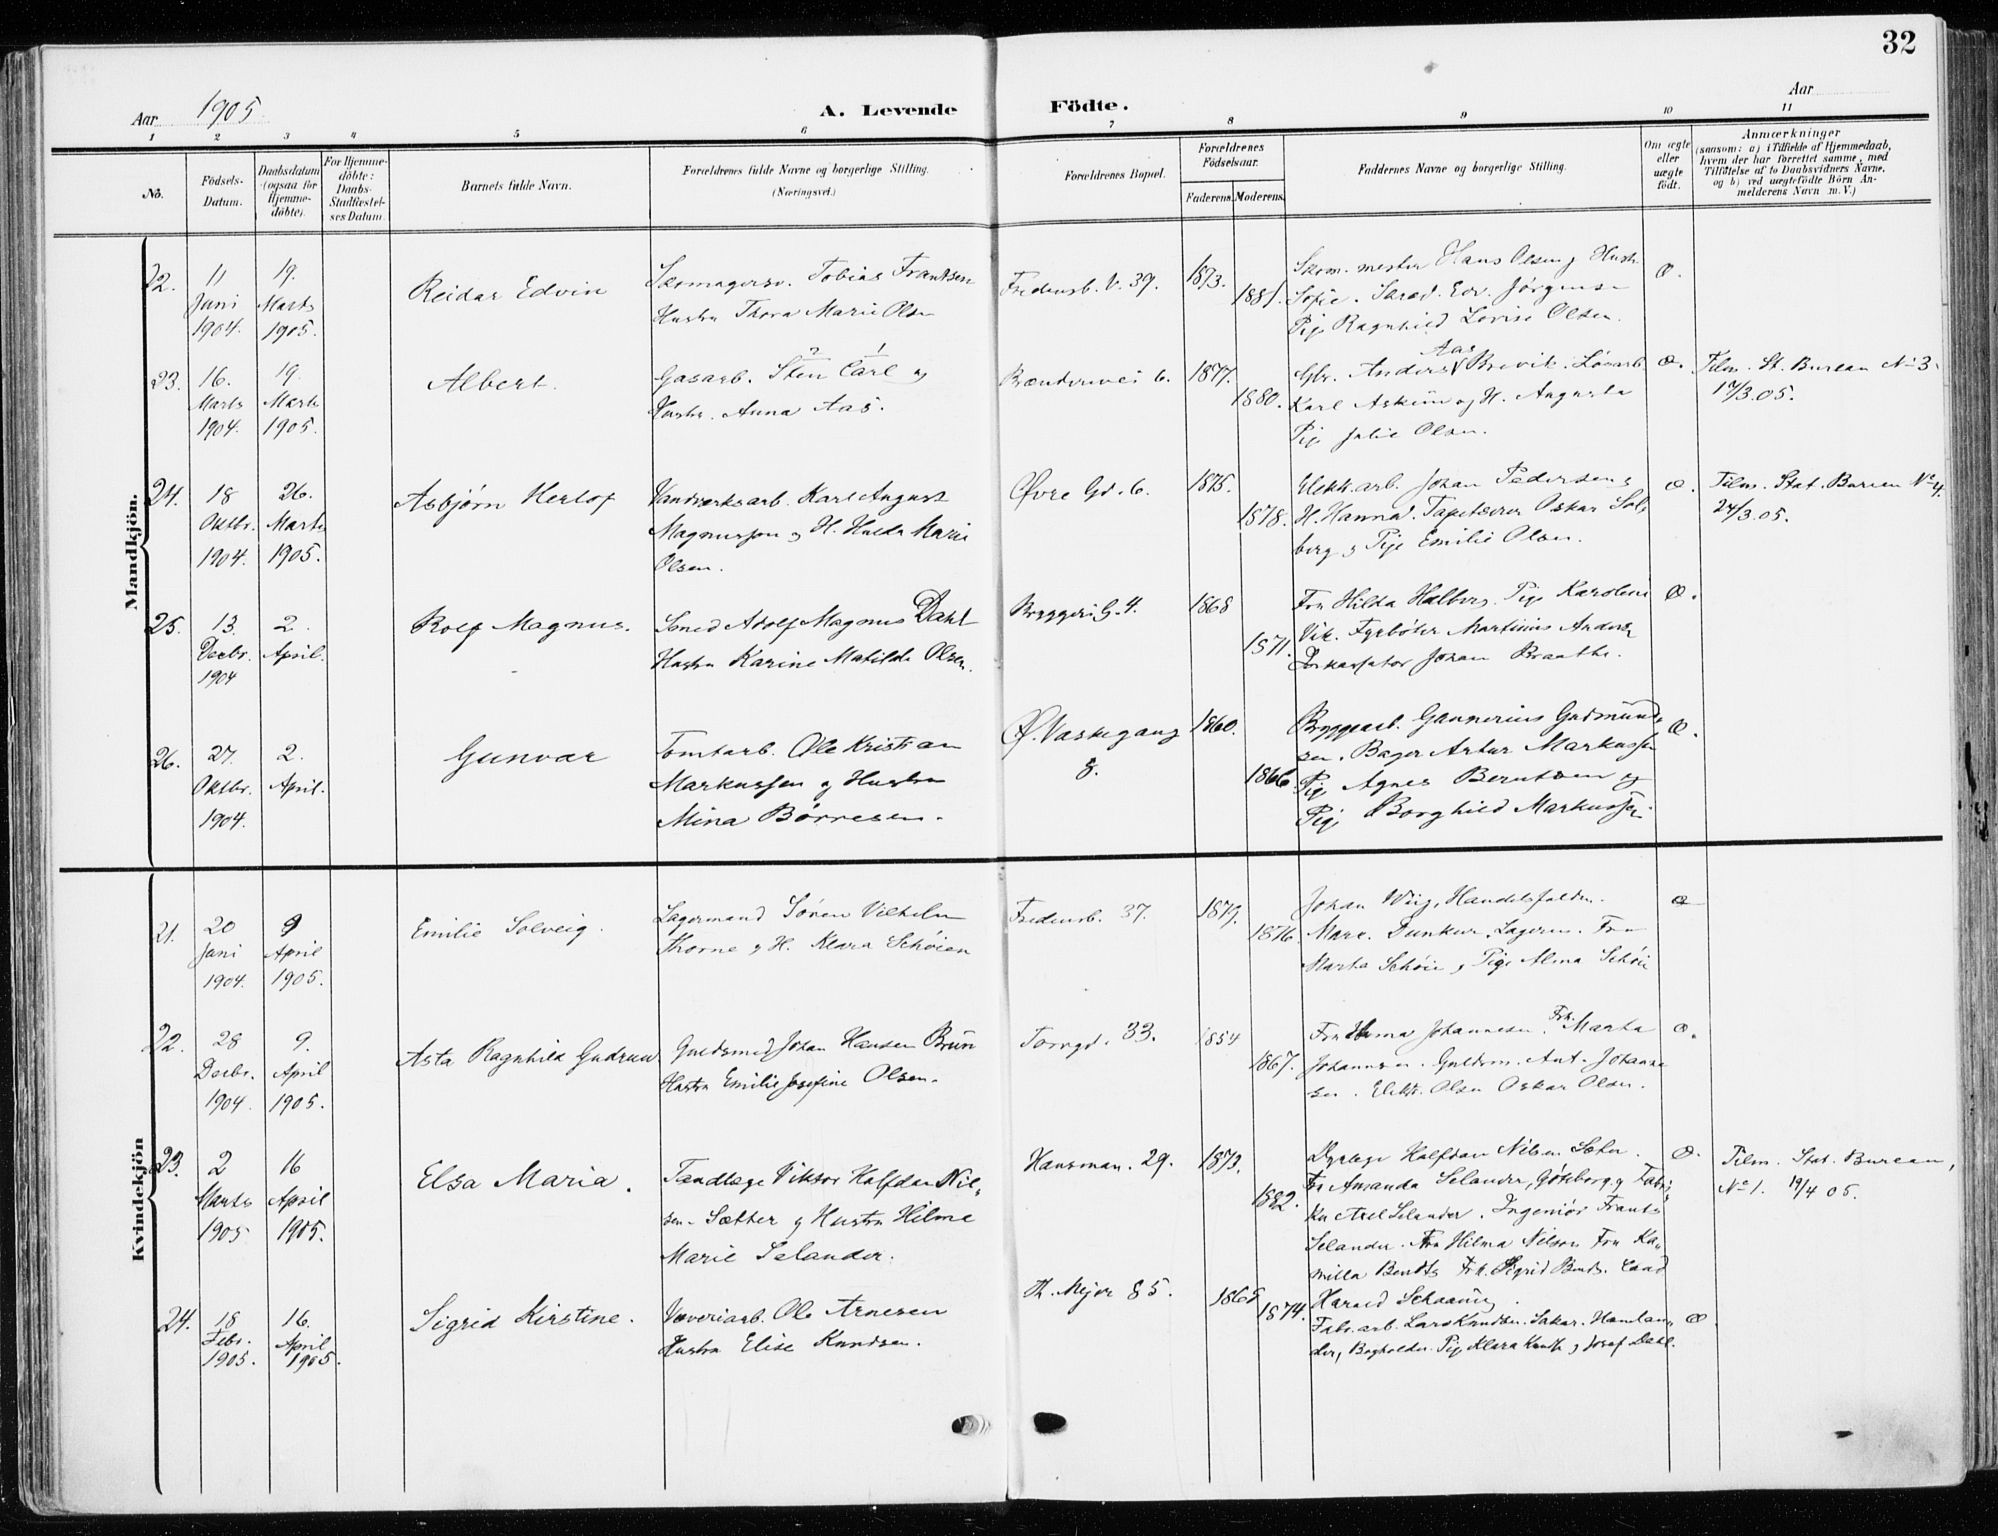 32
Aar 1905
A. Levende Födte.
Aar
1 2 3 4 5 6 7 8 9 10 11
No.
Födsels-
Datum.
Daabsdatum
(ogsaa for
Hjemme-
døbte).
For Hjemme-
döbte:
Daabs-
Stadfæstel-
ses Datum.
Barnets fulde Navn.
Forældrenes fulde Navne og borgerlige Stilling.
(Næringsvei.)
Forældrenes Bopæl.
Forældrenes
Födselsaar.
Faderens. Moderens.
Faddernes Navne og borgerlige Stilling.
Om ægte
eller
uægte
födt.
Anmærkninger
(saasom: a) i Tilfælde af Hjemmedaab,
hvem der har forrettet samme, med
Tilføielse af to Daabsvidners Navne,
og b) ved uægtefödte Börn An-
melderens Navn m. V.)
Mandkjön.
22. 11 Juni 1904. 19. Marts 1905.
Reidar Edvin
Skomagersv. Tobias Frantsen
Hustru Thora Marie Olsen
Fredensb. V. 39. 1873. 1881.
Skom. mester Hans Olsen og Hustr
Sofie. Edv. Jørgensen
Pige Ragnhild Lovise Olsen.
Æ.
23. 16. Marts 1904. 19. Marts 1905.
Albert.
2 1
Gasarb. Sten Carl og
Hustr. Anna Aas.
Brænderivei 6. 1877. 1880.
Aas
Gbr. Anders Brevik. Løsarb
Karl Askim og H. Augusta
Pige Julie Olsen.
Æ.
Tilm. St. Bureau No 3.
17/3.05.
24. 18 Oktbr. 1904. 26. Marts 1905.
Asbjørn Herlof
Vandværksarb. Karl August
Magnussen og H. Hulda Marie
Olsen.
Øvre Gd. 6. 1875. 1878.
arb. Johan Pedersen og
H. Hanna. Tapetserer Oskar Sol-
berg og Pige Emilie Olsen.
Æ.
Tilm. Stat. Bureau No 4.
24/3.05.
25. 13. Decbr. 1904 2. April.
Rolf Magnus.
Smed Adolf Magnus Dahl
Hustru Karine Matilde Olsen.
Bryggerig. 4. 1868 1871.
Fru Hilda Halberg. Pige Karoline
Vik. Fyrbøter Martinius Anders
Johan Braathe.
Æ.
26. 27. Oktbr. 1904. 2. April.
Gunvar
Tomtarb. Ole Kristian
Markussen og Hustru
Mina Børresen.
Ø. Vaskegang
8.
1860. 1866.
Bryggearb. Gunnerius Gudmund-
sen. Bager Artur Markussen
Pige Agnes Berntsen og
Pige Borghild Markussen.
Æ.
Kvindekjön
21. 20 Juni 1904. 9 April 1905.
Emilie Solveig.
Lagermand Søren Vilhelm
Thorne og H. Klara Schøien
Fredensb. 37. 1879. 1876.
Johan Wiig, Handelsfuldm.
Marc. Dunker, Lagerm. Fru
Marta Schøie og Pige Alma Schøie
Æ
22. 28 Decbr. 1904 9. April 1905.
Asta Ragnhild Gudrun
Guldsmed Johan Hansen Brun
Hustru Emilie Josefine Olsen.
Torvgd. 33. 1854 1867.
Fru Johannesen. Frk. Marta
Johannsen. Guldsm. Ant. Johanne-
sen. Elektr. Olsen Oskar Olsen.
Æ.
23. 2 Marts 1905 16 April 1905.
Elsa Maria.
Tandlæge Viktor Halfdan Nil-
sen-Sætter og Hustru Hilma
Marie Selander.
Hausman. 29. 1873. 1882.
Dyrlæge Halfdan Nilsen Sæter.
Fr Amanda Selander, Göteborg. og Fabri-
ker Axel Selander. Ingeniør Frants
Selander. Fru Hilma Nilsen Fru Ka-
milla Bendts Frk. Sigrid Bendts. Cand
Harald Schaanng.
Æ.
Tilm. Stat. Bureau,
No 1. 19/4 05.
24. 18 Febr. 1905. 16. April 1905.
Sigrid Kirstine.
Væveriarb. Ole Arnesen
Hustru Elise Knudsen.
Th. Mejer 85. 1868 1874.
Fabr. arb. Lars Knudsen. Hamlan-
der, Bogholder. Pige Klara og Josef Dahl.
Æ.